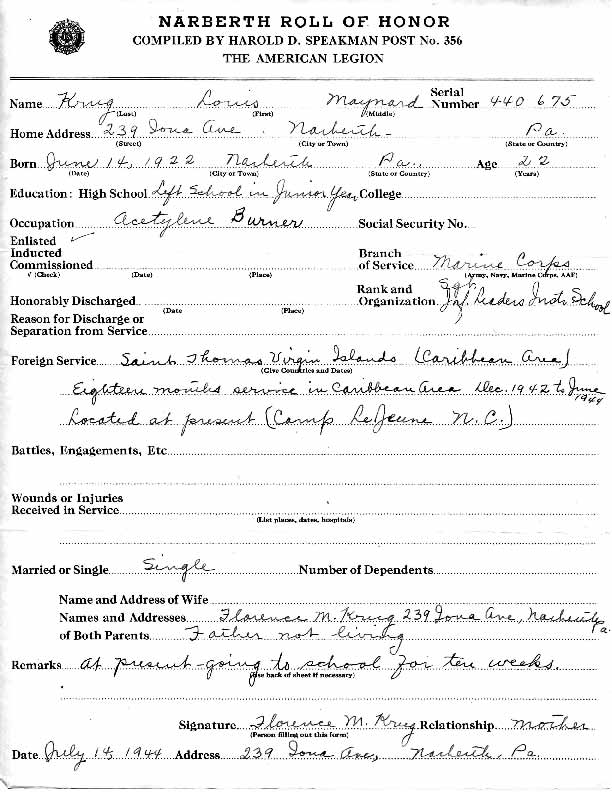 NARBERTH ROLL OF HONOR
COMPILED BY HAROLD D. SPEAKMAN POST No. 356
THE AMERICAN LEGION
Name Krug Louis Maynard Serial Number 440 675
(Last) (First) (Middle)
Home Address 239 Iona Ave. Narberth Pa.
(Street) (City or Town) (State or Country)
Born June 14, 1922 Narberth Pa. Age 22
(Date) (City or Town) (State or Country) (Years)
Education: High School Left School in Junior Year College
Occupation Acetylene Burner Social Security No.
Enlisted ✓
Inducted
Commissioned Branch of Service Marine Corps
√ (Check) (Date) (Place) (Army, Navy, Marine Corps, AAF)
Honorably Discharged Rank and Organization Sgt. Inf. Leaders Instr School
(Date (Place)
Reason for Discharge or
Separation from Service
Foreign Service Saint Thomas Virgin Islands (Caribbean Area)
(Give Countries and Dates)
Eighteen months service in Caribbean Area Dec. 1942 to June 1944
Located at present (Camp LeJeune N.C.)
Battles, Engagements, Etc
Wounds or Injuries
Received in Service
(List places, dates, hospitals)
Married or Single Single Number of Dependents
Name and Address of Wife
Names and Addresses Florence M. Krug 239 Iona Ave, Narberth Pa.
of Both Parents Father not living
Remarks At present going to school for ten weeks.
(Use back of sheet if necessary)
Signature Florence M. Krug Relationship mother
(Person filling out this form)
Date July 14, 1944 Address 239 Iona Ave, Narberth, Pa